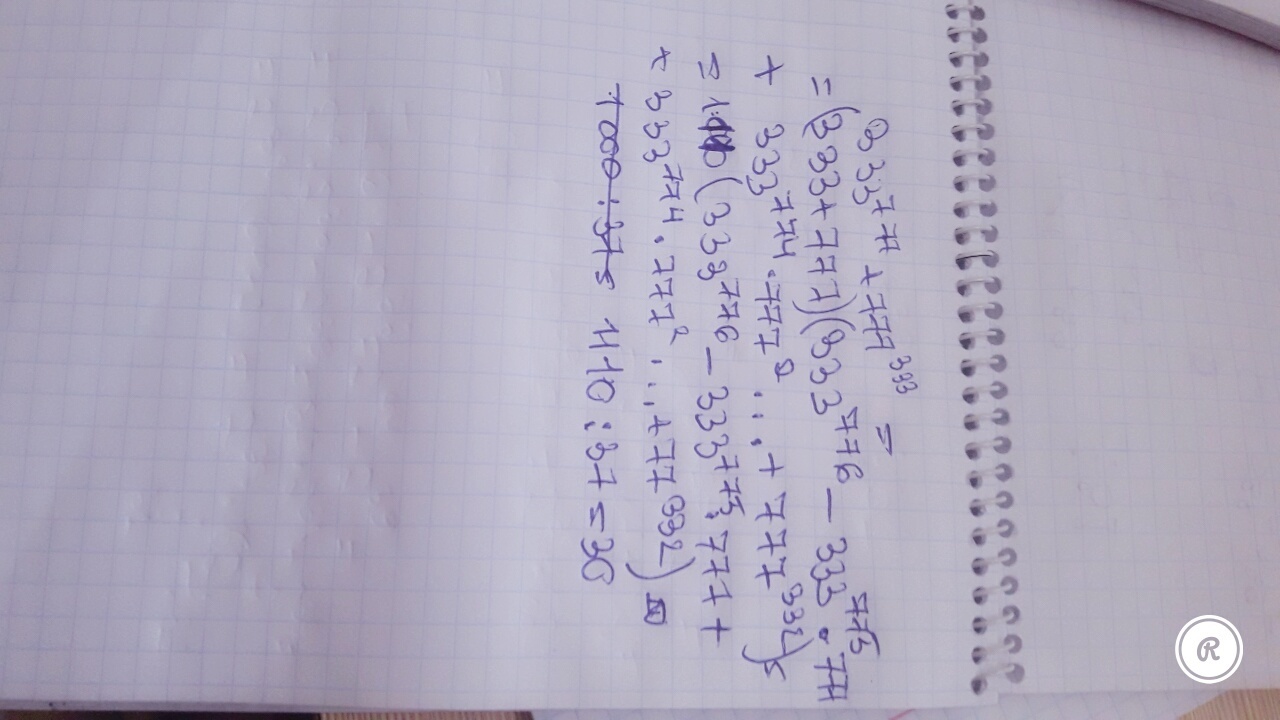 333⁷⁷⁷ + 777³³³ =
= (333 + 777)(333⁷⁷⁶ - 333⁷⁷⁵ · 777
+ 333⁷⁷⁴ · 777² ... + 777³³²) =
= 1110 (333⁷⁷⁶ - 333⁷⁷⁵ · 777 +
+ 333⁷⁷⁴ · 777² ... + 777³³²)
1110 : 37 = 30
R